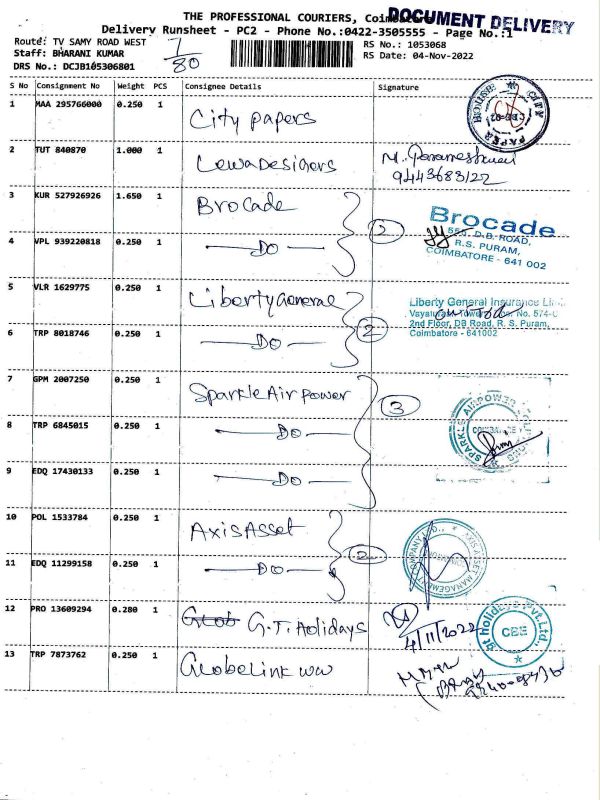 THE PROFESSIONAL COURIERS, Coimbatore
DOCUMENT DELIVERY
Delivery Runsheet - PC2 - Phone No.:0422-3505555 - Page No.:1
Route: TV SAMY ROAD WEST
1/80
RS No.: 1053068
Staff: BHARANI KUMAR
RS Date: 04-Nov-2022
DRS No.: DCJB105306801
S No Consignment No Weight PCS Consignee Details Signature
1 MAA 295766000 0.250 1 City papers
CITY PAPER HOUSE
CBE-02
2 TUT 840870 1.000 1 Lewa Designers
9443688122
3 KUR 527926926 1.650 1 Brocade
2
Brocade
D.B. ROAD,
R.S. PURAM,
COIMBATORE - 641 002
4 VPL 939220818 0.250 1 — Do —
5 VLR 1629775 0.250 1 Liberty General
2
Liberty General Insurance
No. 574-
2nd Floor, DB Road, R. S. Puram,
Coimbatore - 641002
6 TRP 8018746 0.250 1 — Do —
7 GPM 2007250 0.250 1 Sparkle Air power
3
SPARKLE AIRPOWER
8 TRP 6845015 0.250 1 — Do —
9 EDQ 17430133 0.250 1 — Do —
10 POL 1533784 0.250 1 Axis Asset
2
AXIS ASSET MANAGEMENT COMPANY LTD.,
11 EDQ 11299158 0.250 1 — Do —
12 PRO 13609294 0.280 1 Glob G.T. Holidays
4/11/2022
gt holidays Pvt.Ltd.,
CBE
13 TRP 7873762 0.250 1 Globelink ww